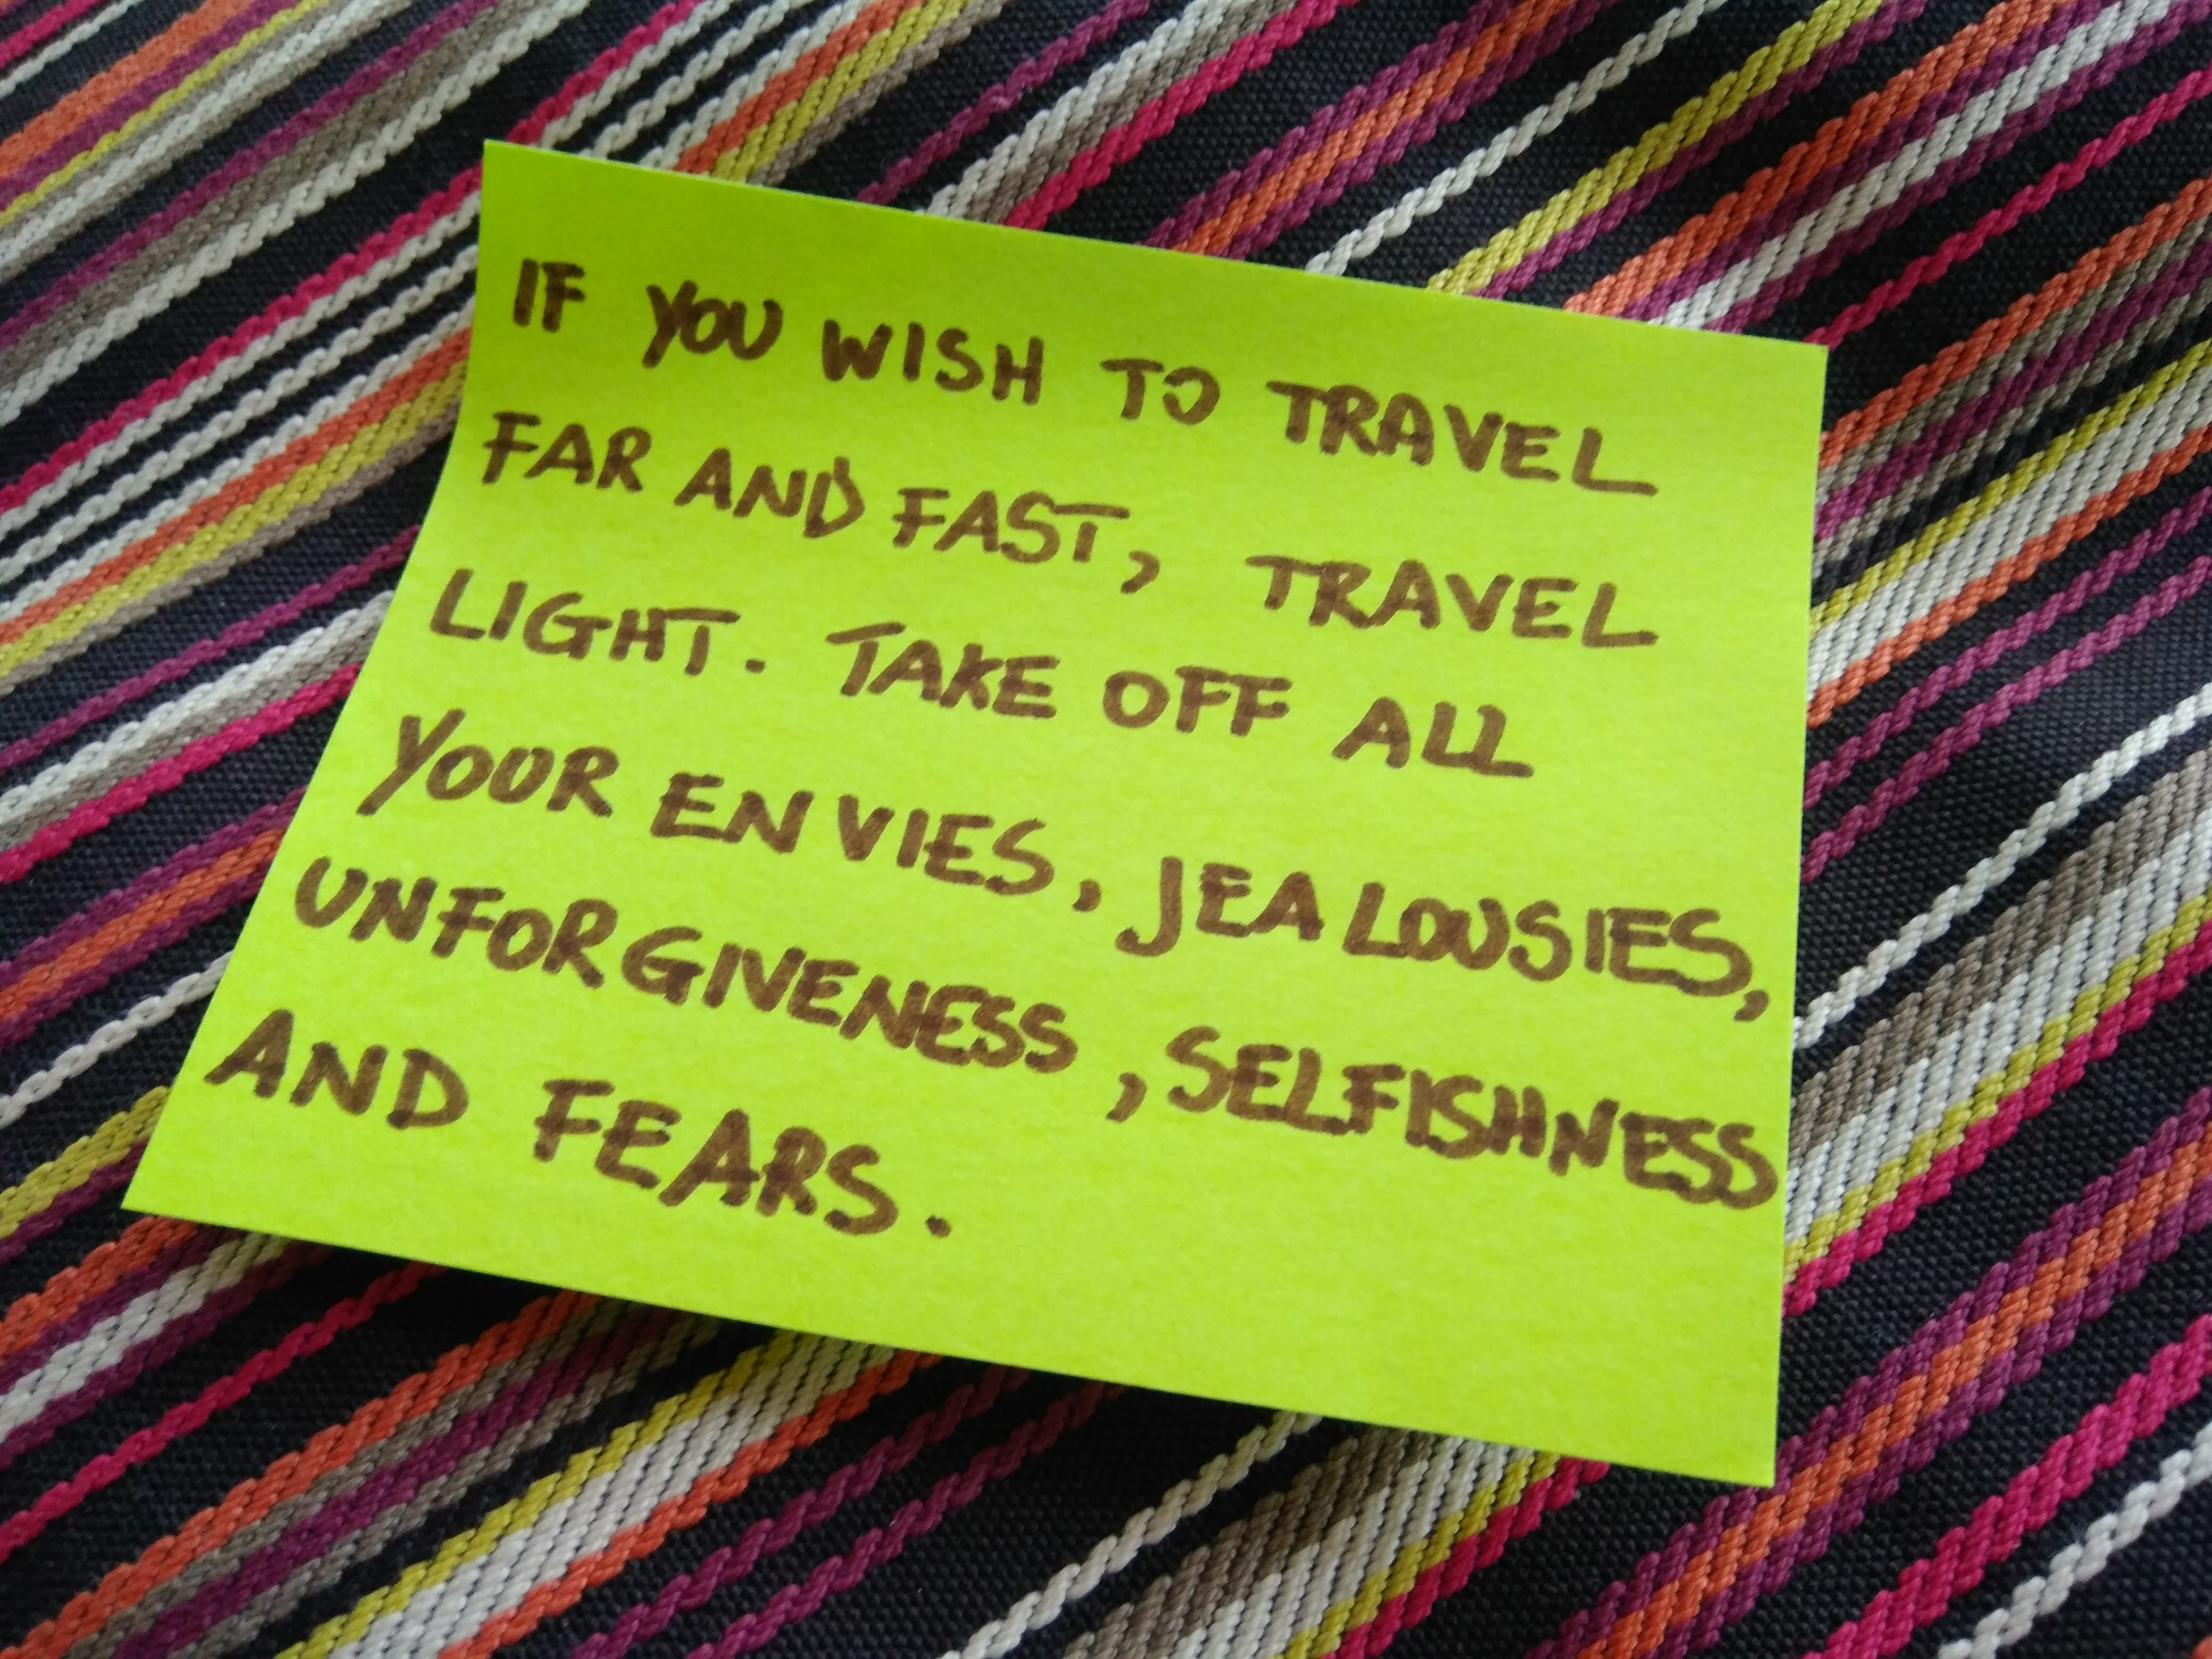 IF YOU WISH TO TRAVEL
FAR AND FAST, TRAVEL
LIGHT. TAKE OFF ALL
YOUR ENVIES, JEALOUSIES,
UNFORGIVENESS, SELFISHNESS
AND FEARS.